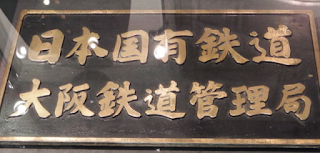 日本国有鉄道
大阪鉄道管理局